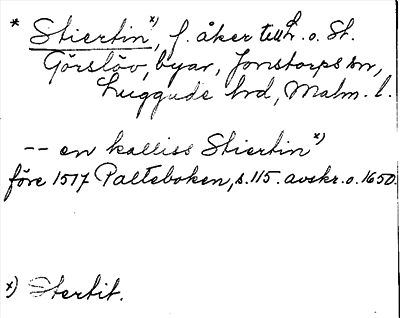 * Stiertin x), f. åker till L. o. St.
Görslöv, byar, Jonstorps sn,
Luggude hrd, Malm. l.
-- en kalliss Stiertin x)
före 1517 Palteboken, s. 115. avskr. o. 1650.
x) Stertit.